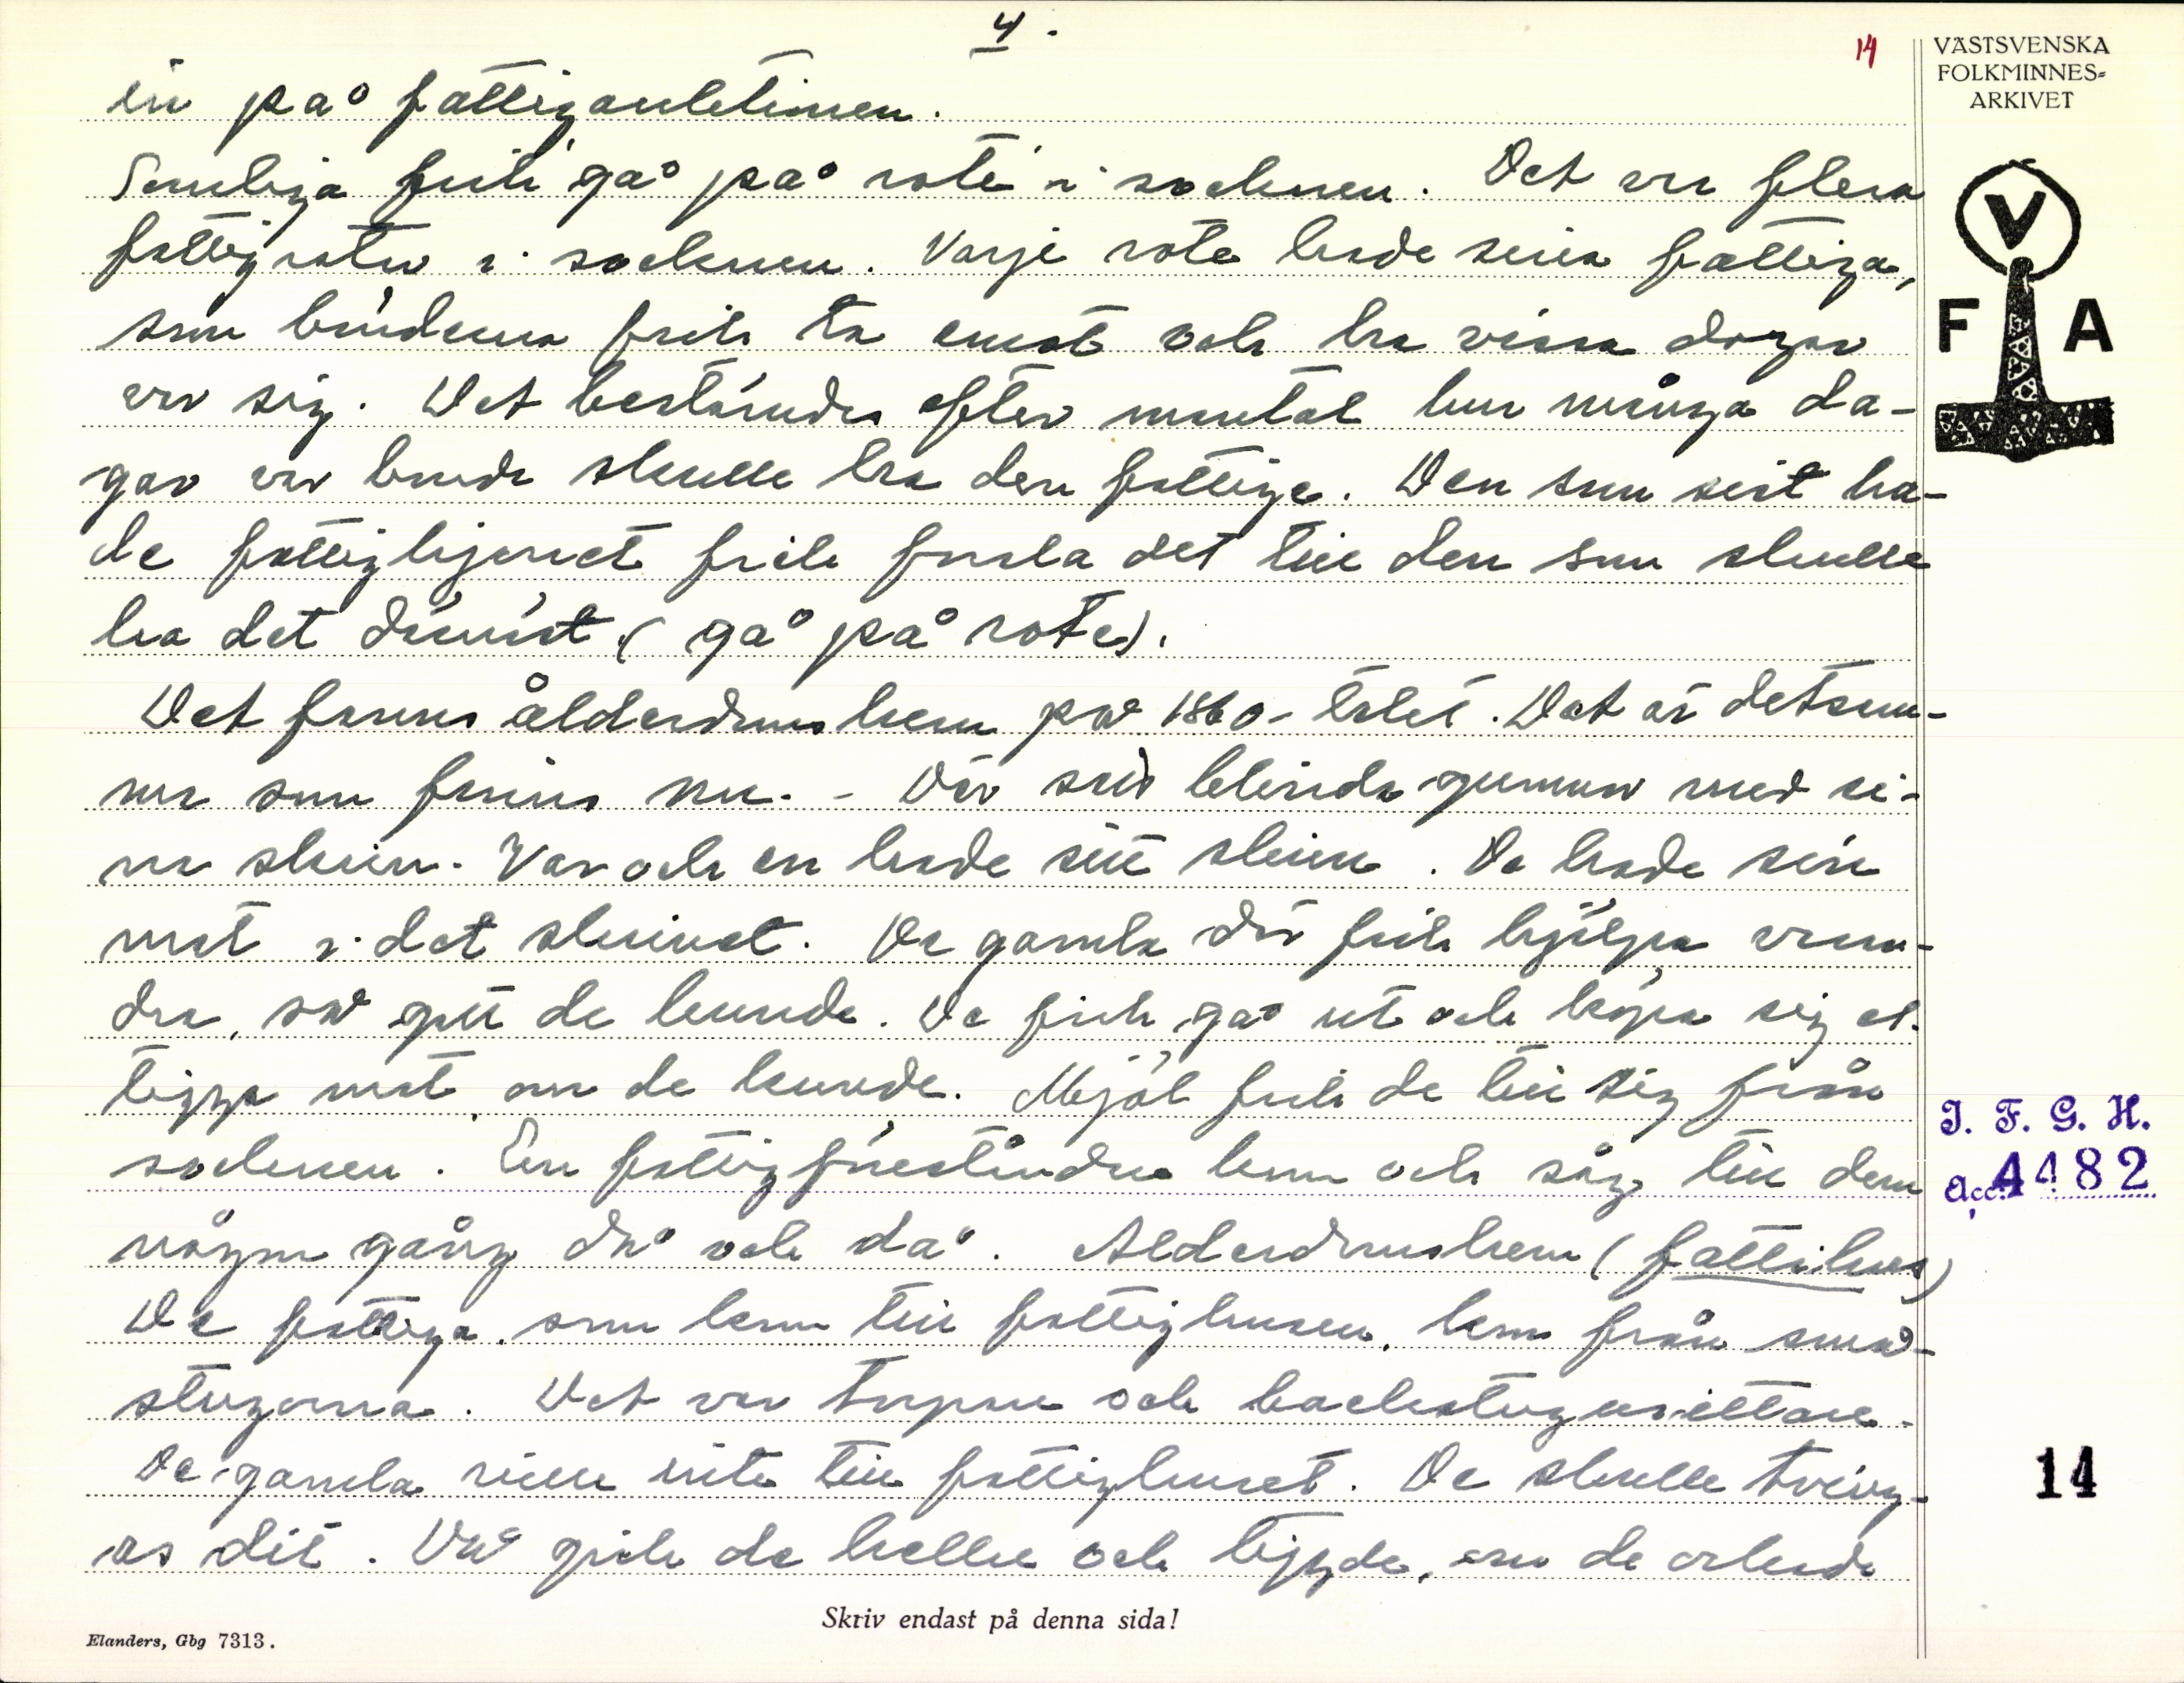 4.
14
VÄSTSVENSKA
FOLKMINNES-
ARKIVET
V
F A
in på fattigauktionen.
Somliga fick gå på rote i socknen. Det var flera
fattigrotar i socknen. Varje rote hade sina fattiga,
som bönderna fick ta emot och ha vissa dagar
var sig. Det bestämdes efter mantal hur många da-
gar var bonde skulle ha den fattige. Den som sist ha-
de fattighjonet fick forsla det till den som skulle
ha det därnäst (gå på rote).
Det fanns ålderdomshem på 1860-talet. Det är detsam-
ma som finns nu. - Där satt blinda gummor med si-
na skrin. Var och en hade sitt skrin. De hade sin
mat i det skrinet. De gamla där fick hjälpa varan-
dra, så gott de kunde. De fick gå ut och köpa sig el.
tigga mat, om de kunde. Mjöl fick de till sig från
socknen. En fattigföreståndare kom och såg till dem
någon gång då och då. Ålderdomshem (fattihus)
De fattiga, som kom till fattighusen, kom från små-
stugorna. Det var torpare och backstugusittare.
De gamla ville inte till fattighuset. De skulle tving-
as dit. Då gick de hellre och tiggde, om de orkade
J. F. G. H.
Acc. 4482
14
Skriv endast på denna sida!
Elanders, Gbg 7313.